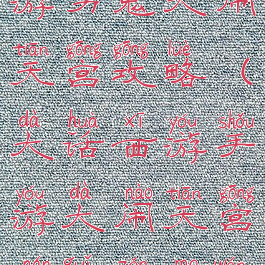 游男鬼大闹
tiān gōng gōng lüè
天宫攻略（
dà huà xī yóu shǒu
大话西游手
yóu dà nào tiān gōng
游大闹天宫